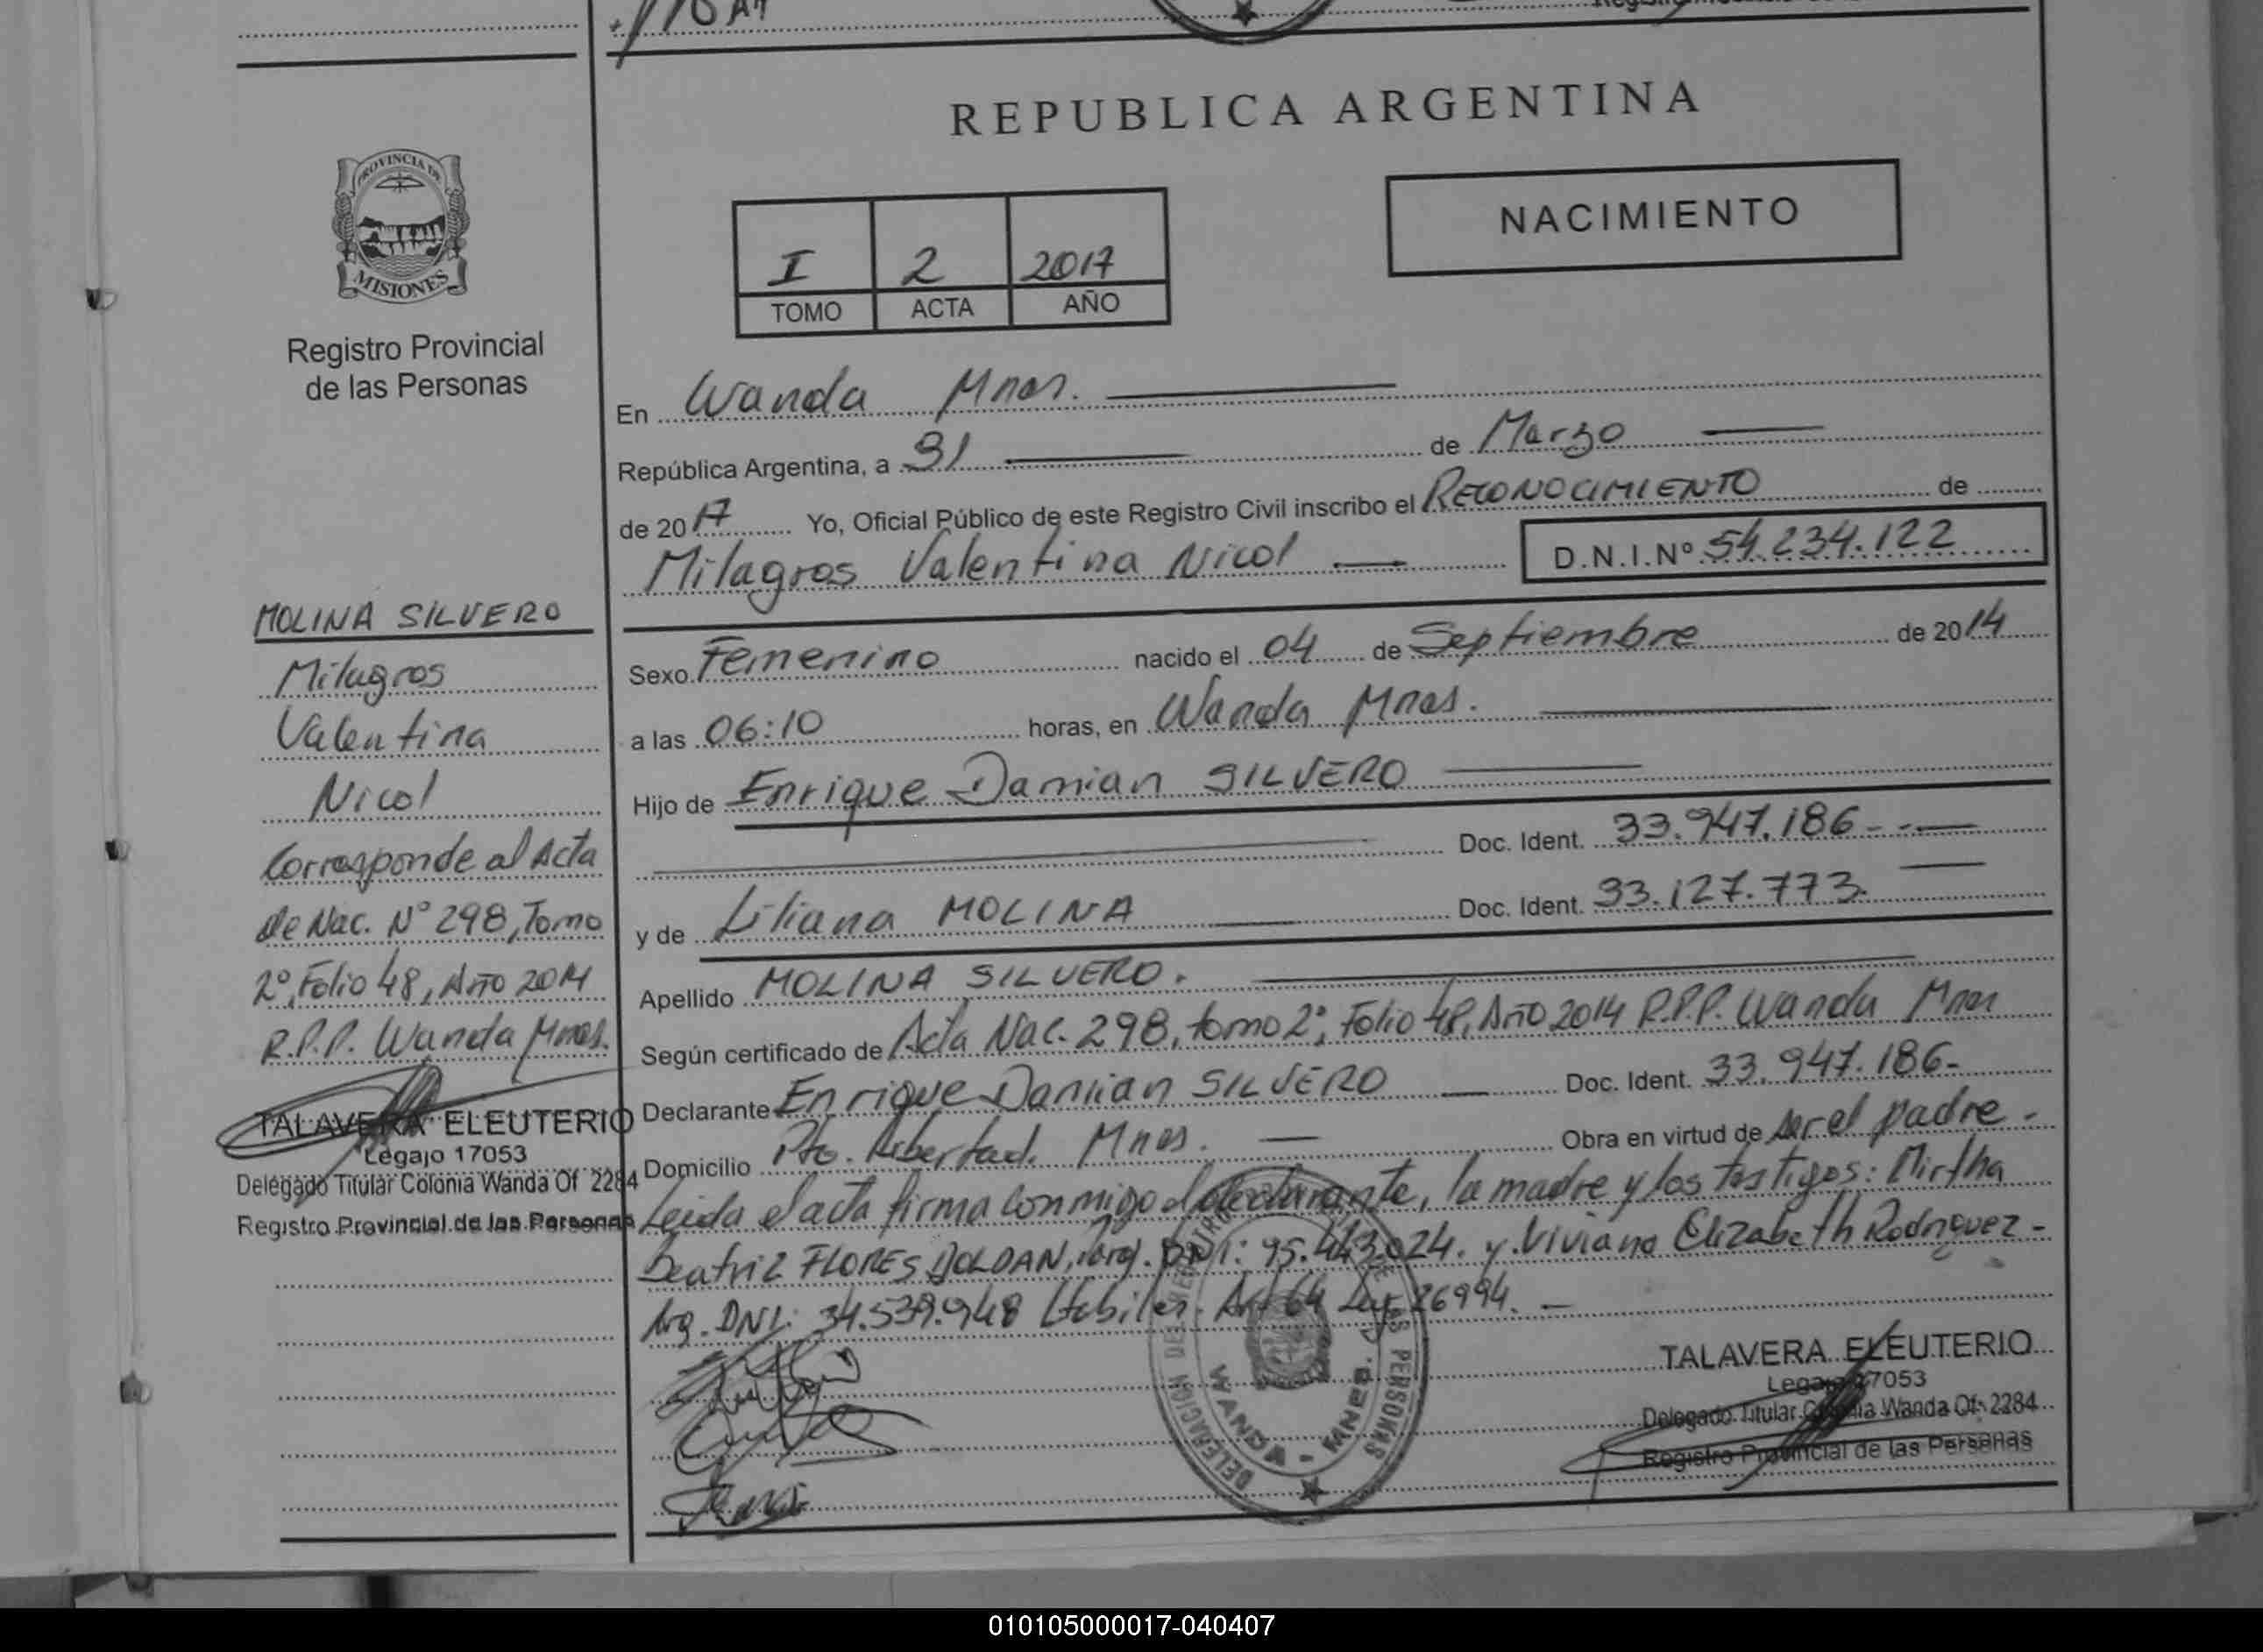 REPUBLICA ARGENTINA
PROVINCIA DE
MISIONES
Registro Provincial
de las Personas
NACIMIENTO
I 2 2017
TOMO ACTA AÑO
En Wanda Mnes.
República Argentina, a 31 de Marzo
de 2017 Yo, Oficial Público de este Registro Civil inscribo el RECONOCIMIENTO de
Milagros Valentina Nicol D.N.I.Nº 54.234.122
Sexo Femenino nacido el 04 de Septiembre de 2014
a las 06:10 horas, en Wanda Mnes.
Hijo de Enrique Damian SILVERO
Doc. Ident. 33.947.186-
y de Liliana MOLINA Doc. Ident. 33.127.773.
Apellido MOLINA SILVERO.
Según certificado de Acta Nac. 298, tomo 2º, Folio 48, Año 2014 R.P.P. Wanda Mnes
Declarante Enrique Damian SILVERO Doc. Ident. 33.947.186-
Domicilio Pto. Libertad. Mnes. Obra en virtud de ser el padre.
Leida el acta firma conmigo el declarante, la madre y los testigos: Mirtha
Beatriz FLORES DOLDAN, DNI: 95.443.024. y Viviana Elizabeth Rodriguez-
Arg. DNI: 34.539.948 Habiles. Art 64 Ley 26994.
MOLINA SILVERO
Milagros
Valentina
Nicol
Corresponde al Acta
de Nac. Nº 298, Tomo
2º, Folio 48, Año 2014
R.P.P. Wanda Mnes.
TALAVERA ELEUTERIO
Legajo 17053
Delegado Titular Colonia Wanda Of 2284
Registro Provincial de las Personas
DELEGACION DEL REGISTRO DE LAS PERSONAS
WANDA - MNES.
TALAVERA ELEUTERIO
Legajo 17053
Delegado Titular Colonia Wanda Of. 2284
Registro Provincial de las Personas
010105000017-040407